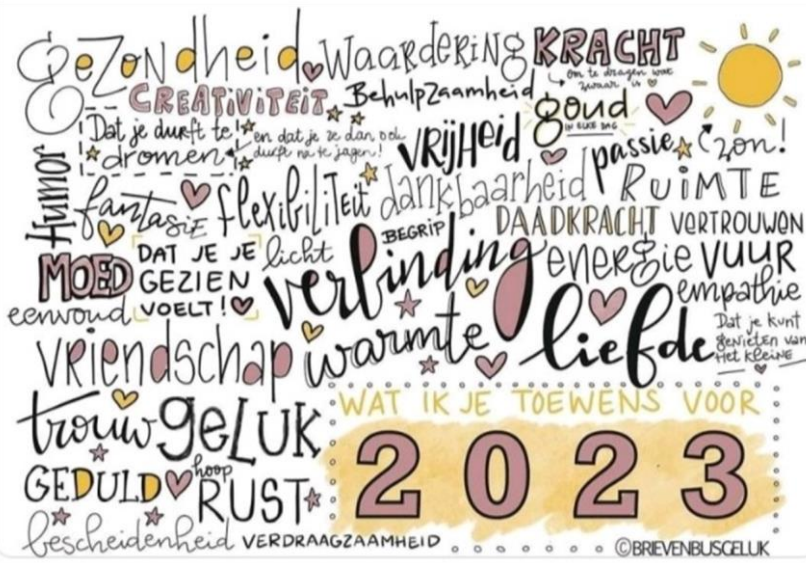 Gezondheid waardering KRACHT
om te dragen wat zwaar is
CREATIVITEIT Behulpzaamheid goud
IN ELKE DAG
Dat je durft te dromen en dat je ze dan ook durft na te jagen!
VRIJHEID passie zon!
Humor
fantasie flexibiliteit dankbaarheid RUIMTE
BEGRIP DAADKRACHT VERTROUWEN
MOED DAT JE JE GEZIEN VOELT! licht verbinding energie VUUR
eenvoud empathie
vriendschap warmte liefde
Dat je kunt
genieten van
Het kleine
trouw GELUK
WAT IK JE TOEWENS VOOR
2023
GEDULD hoop RUST
bescheidenheid VERDRAAGZAAMHEID
©BRIEVENBUSGELUK